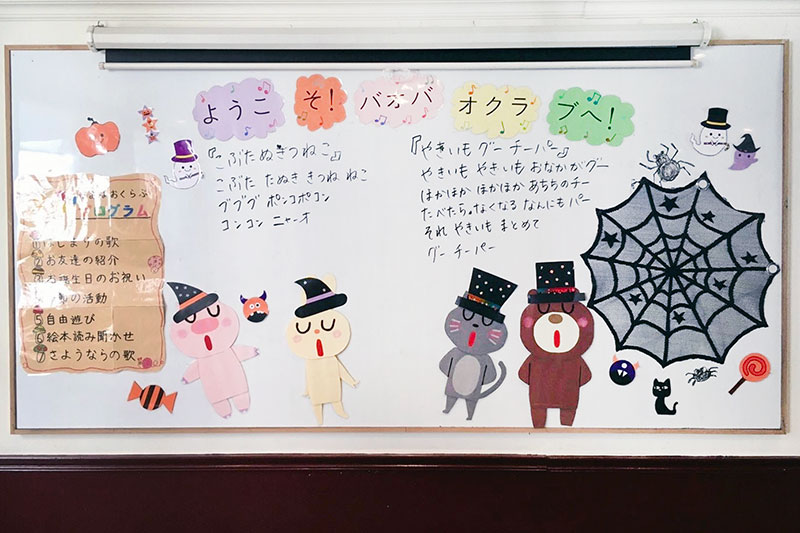 ようこそ!バオバオクラブへ!
おくらぶ
ログラム
まりの歌
お友達の紹介
お誕生日のお祝い
の活動
⑤自由遊び
⑥絵本読み聞かせ
⑦さようならの歌
『こぶたぬきつねこ』
こぶた たぬき きつね ねこ
ブブブ ポンコポコン
コンコン ニャーオ
『やきいも グー チーパー』
やきいも やきいも おなかがグー
ほかほか ほかほか あちちのチー
たべたら。なくなる なんにも パー
それ やきいも まとめて
グー チーパー